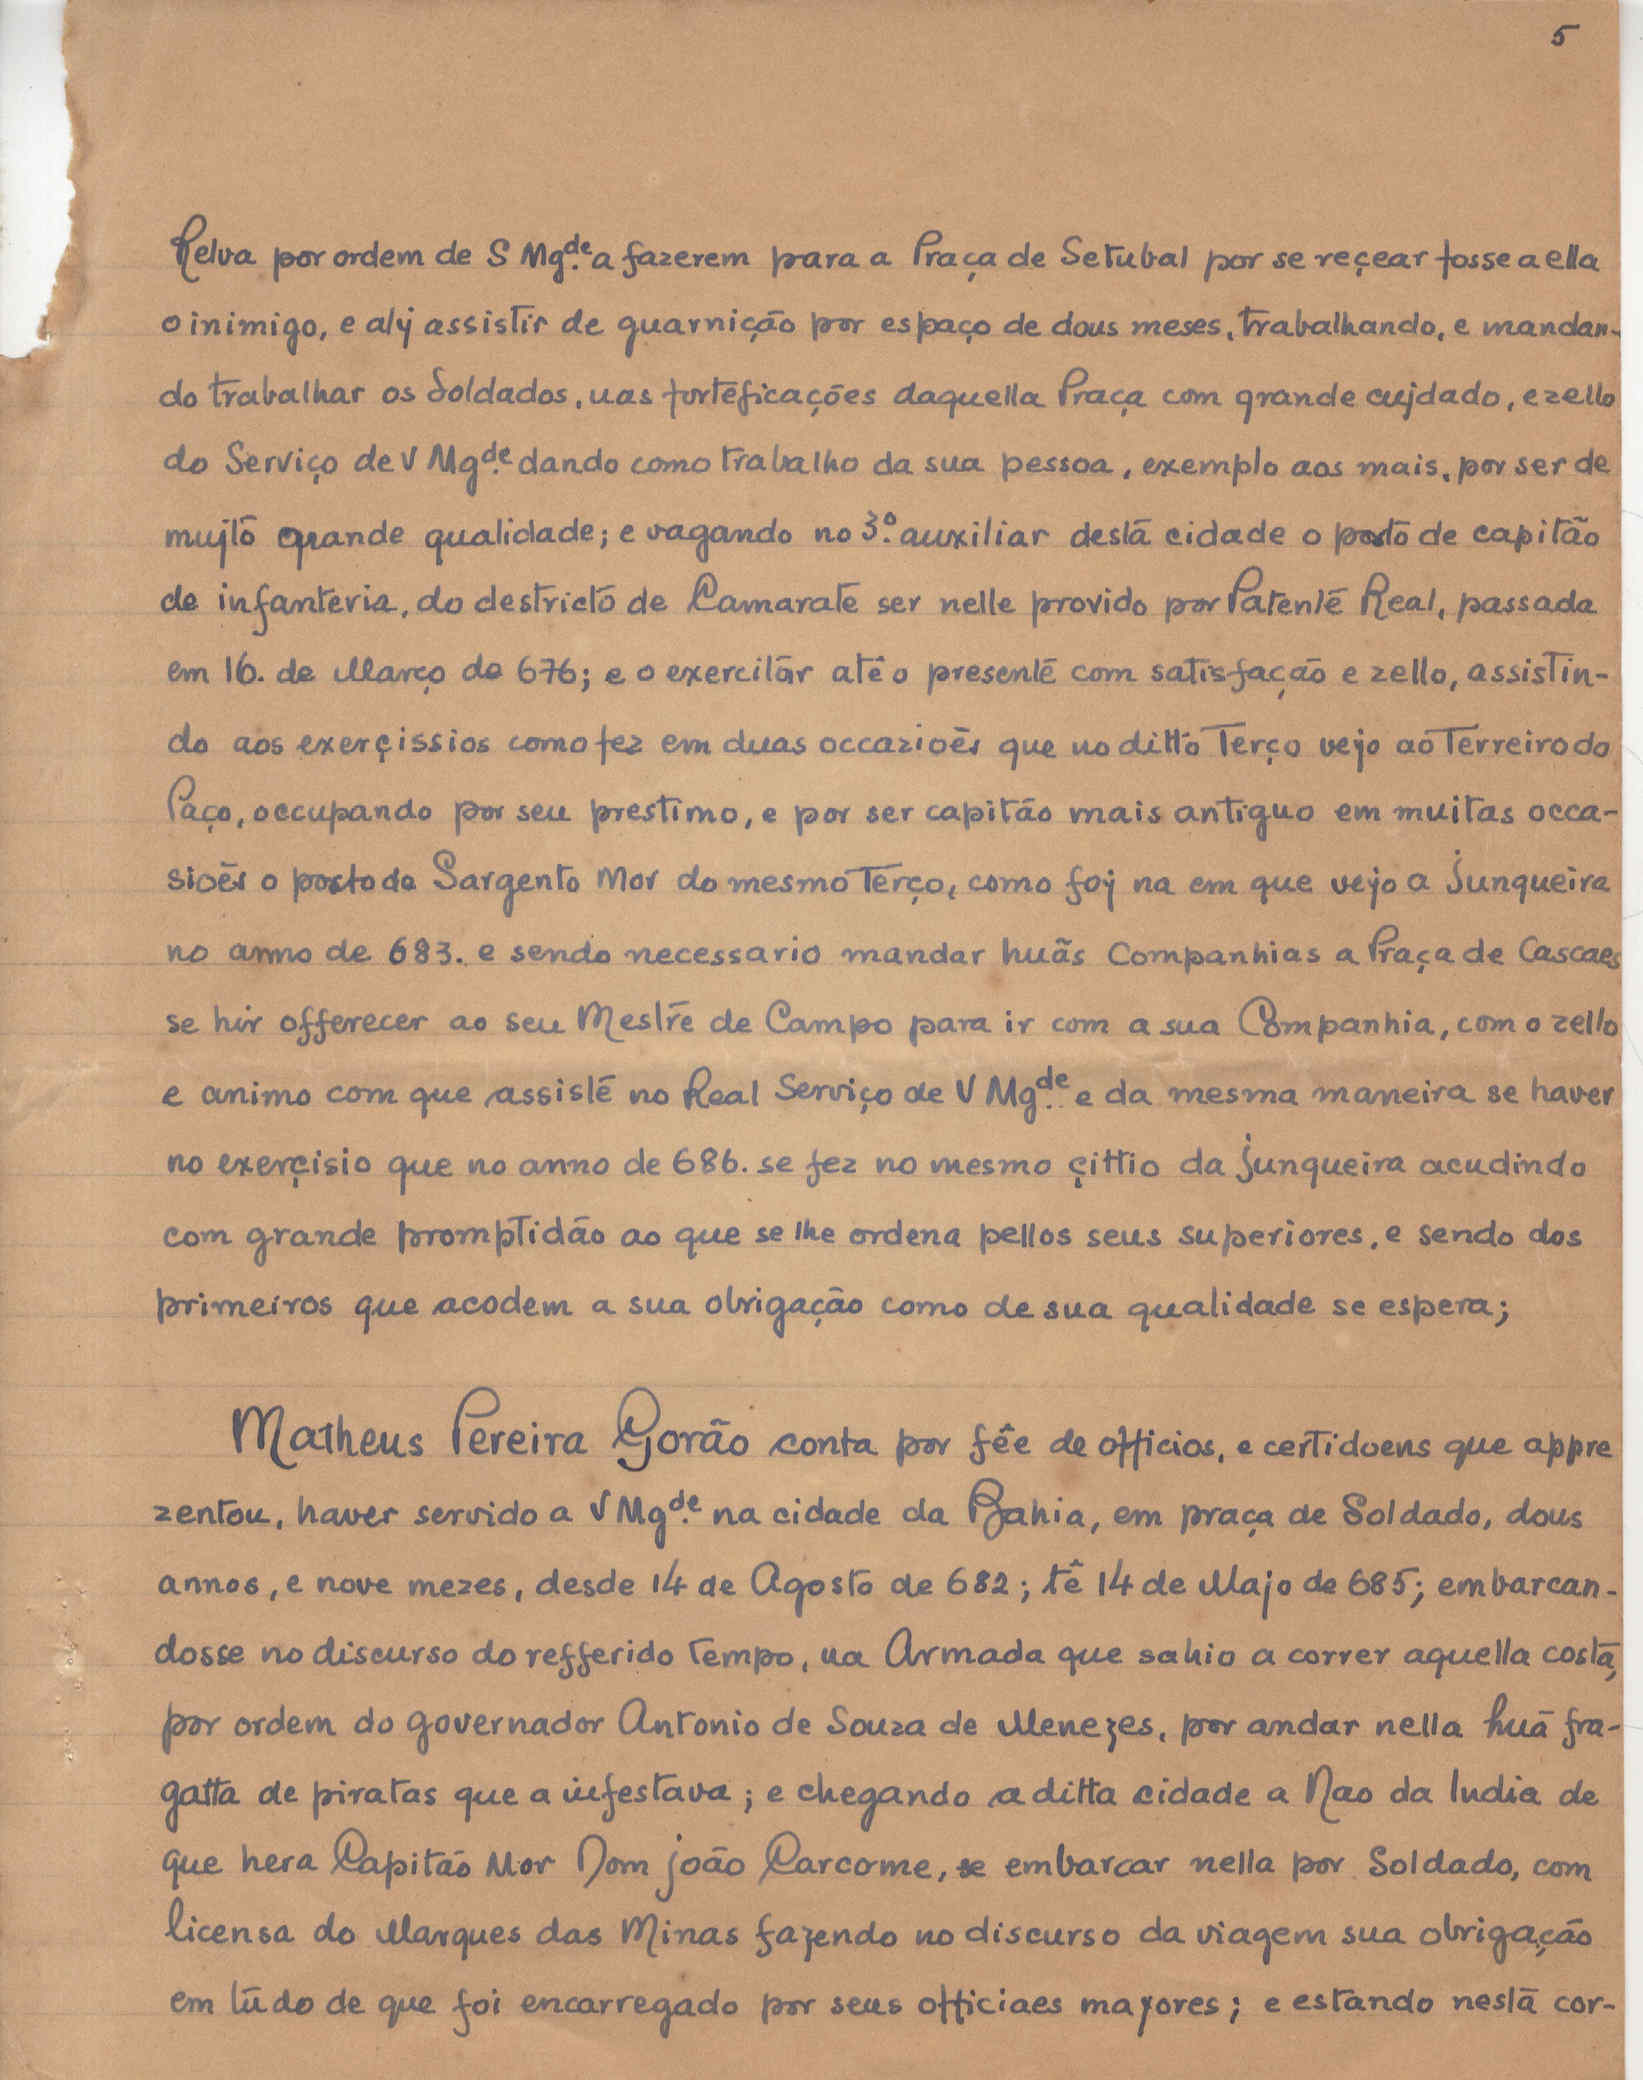 5
Relva por ordem de S Mg.de a fazerem para a Praça de Setubal por se reçear fosse a ella
o inimigo, e alÿ assistir de guarnição por espaço de dous meses, trabalhando, e mandan-
do trabalhar os Soldados, nas forteficações daquella Praça com grande cujdado, e zello
do Serviço de V Mg.de dando como trabalho da sua pessoa, exemplo aos mais, por ser de
mujto grande qualidade; e vagando no 3.º auxiliar desta cidade o posto de capitão
de infanteria, do destricto de Camarate ser nelle provido por Patente Real, passada
em 16. de Março de 676; e o exercitar atê o presente com satisfação e zello, assistin-
do aos exerçissios como fez em duas occazioẽs que no ditto Terço vejo ao Terreiro do
Paço, occupando por seu prestimo, e por ser capitão mais antiguo em muitas occa-
sioẽs o posto de Sargento Mor do mesmo Terço, como foÿ na em que vejo a Junqueira
no anno de 683. e sendo necessario mandar huãs Companhias a Praça de Cascaes
se hir offerecer ao seu Mestre de Campo para ir com a sua Companhia, com o zello
e animo com que assiste no Real Serviço de V Mg.de e da mesma maneira se haver
no exerçisio que no anno de 686. se fez no mesmo çittio da Junqueira acudindo
com grande promptidão ao que se lhe ordena pellos seus superiores, e sendo dos
primeiros que acodem a sua obrigação como de sua qualidade se espera;
Matheus Pereira Gorão conta por fêe de officios, e certidoens que appre
zentou, haver servido a V Mg.de na cidade da Bahia, em praça de Soldado, dous
annos, e nove mezes, desde 14 de Agosto de 682; tê 14 de Majo de 685; embarcan-
dosse no discurso do refferido tempo, na Armada que sahio a correr aquella costa,
por ordem do governador Antonio de Souza de Menezes, por andar nella huã fra-
gatta de piratas que a infestava; e chegando a ditta cidade a Nao da India de
que hera Capitão Mor Dom João Carcome, se embarcar nella por Soldado, com
licensa do Marques das Minas fazendo no discurso da viagem sua obrigação
em tudo de que foi encarregado por seus officiaes mayores; e estando nesta cor-